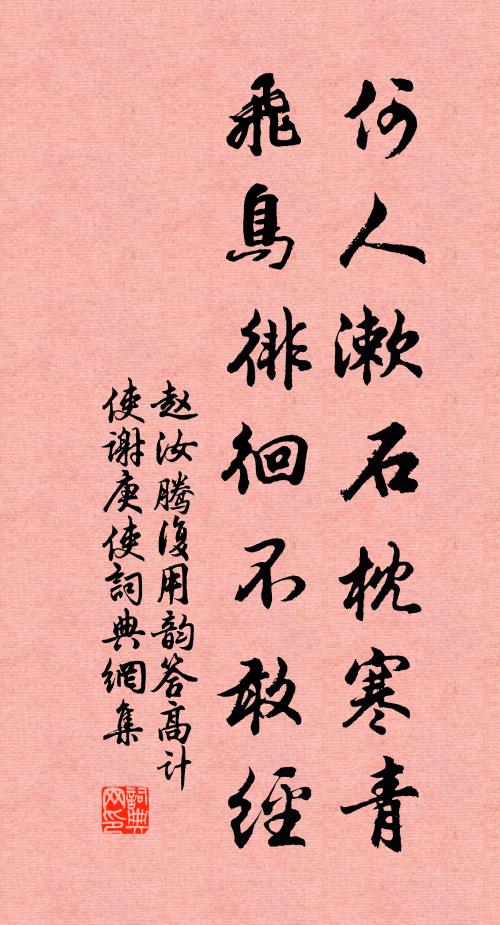 何人漱石枕寒青
飛鳥徘徊不敢經
赵汝騰復用韵答高计
使谢庚使詞典網集
詞典
网印